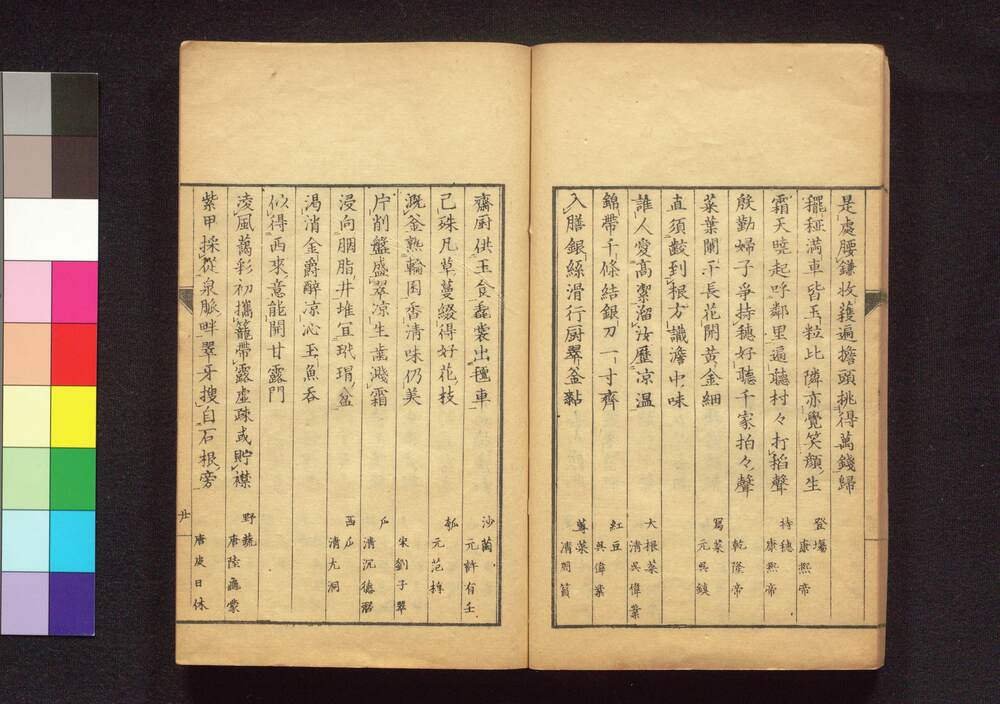 是處腰鎌收穫遍擔頭挑得萬錢歸
登場 康熙帝
穤稏滿車皆玉粒比隣亦覺笑顏生
霜天曉起呼鄰里遍聽村々打稻聲
持穗 康熙帝
殷勤婦子爭持穗好聽千家拍々聲
乾隆帝
菜葉闌干長花開黃金細
寫菜 元吳鎮
直須齩到根方識澹中味
誰人愛高潔溜汝歷凉溫
大根菜 清吳偉業
錦帶千條結銀刀一寸齊
紅豆 吳偉業
入膳銀絲滑行厨翠釜黏
蓴菜 清
齋厨供玉食毳裳出氊車
沙菌 元許有壬
己殊凡草蔓綴得好花枝
瓠 元范梈
溉釜熟輪囷香清味仍美
宋劉子翬
片削盤盛翠凉生齒濺霜
瓜 清沉德潛
浸向胭脂井堆宜玳瑁盆
西瓜 清尤洞
渴消金爵醉凉沁玉魚吞
似得西來意能開甘露門
凌風藹彩初攜籠帶露虛疎或貯襟
野蔬 唐陸龜蒙
紫甲採從泉脈畔翠牙搜自石根旁
唐皮日休
廿